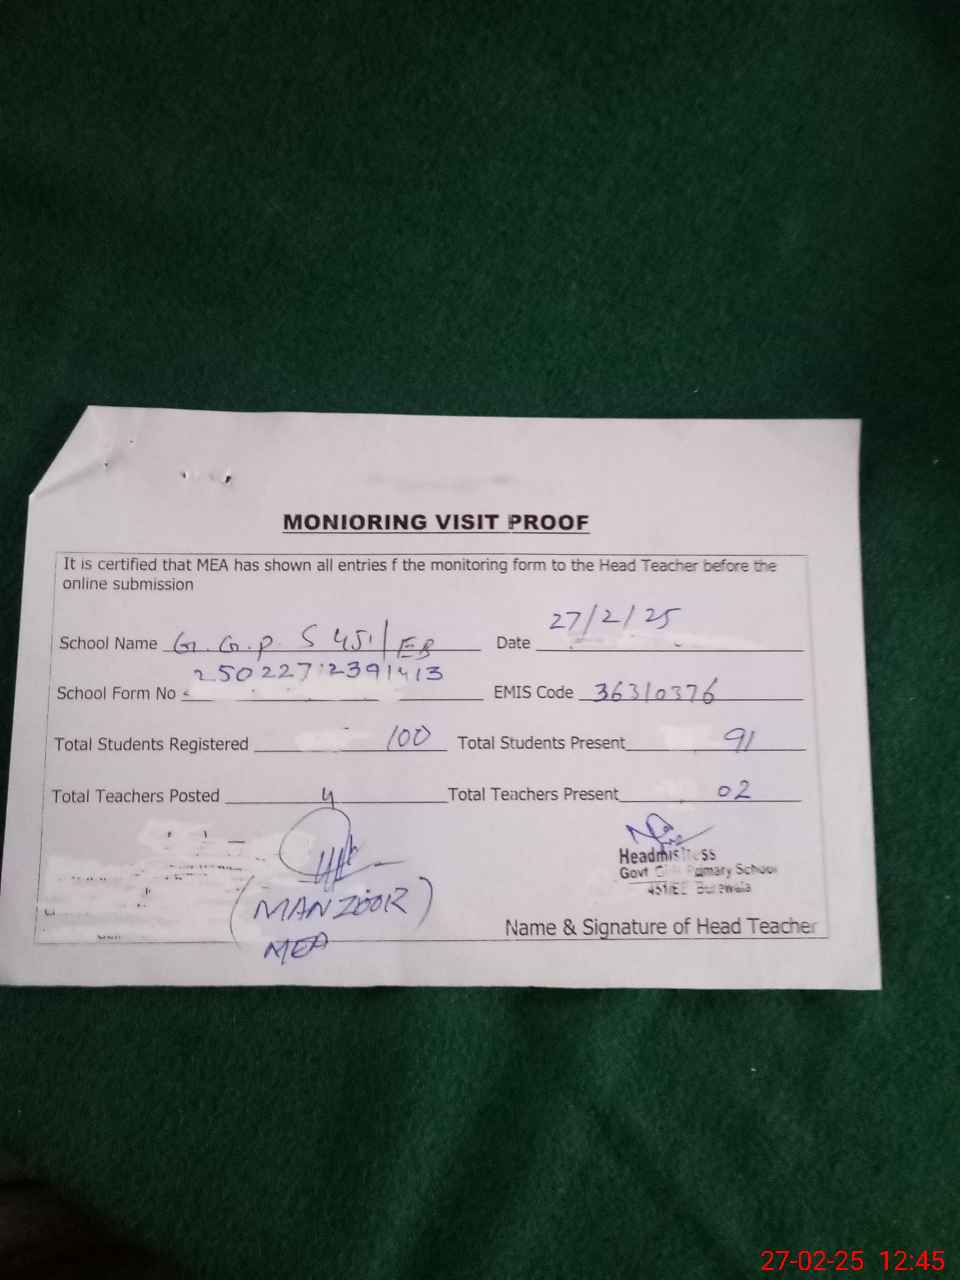 MONIORING VISIT PROOF
It is certified that MEA has shown all entries f the monitoring form to the Head Teacher before the
online submission
School Name G.G.P.S 451/EB Date 27/2/25
School Form No 25022712391413 EMIS Code 36310376
Total Students Registered 100 Total Students Present 91
Total Teachers Posted 4 Total Teachers Present 02
Headmistress
Govt Primary School
451/EB Burewala
(MANZOOR)
MEA
Name & Signature of Head Teacher
27-02-25 12:45